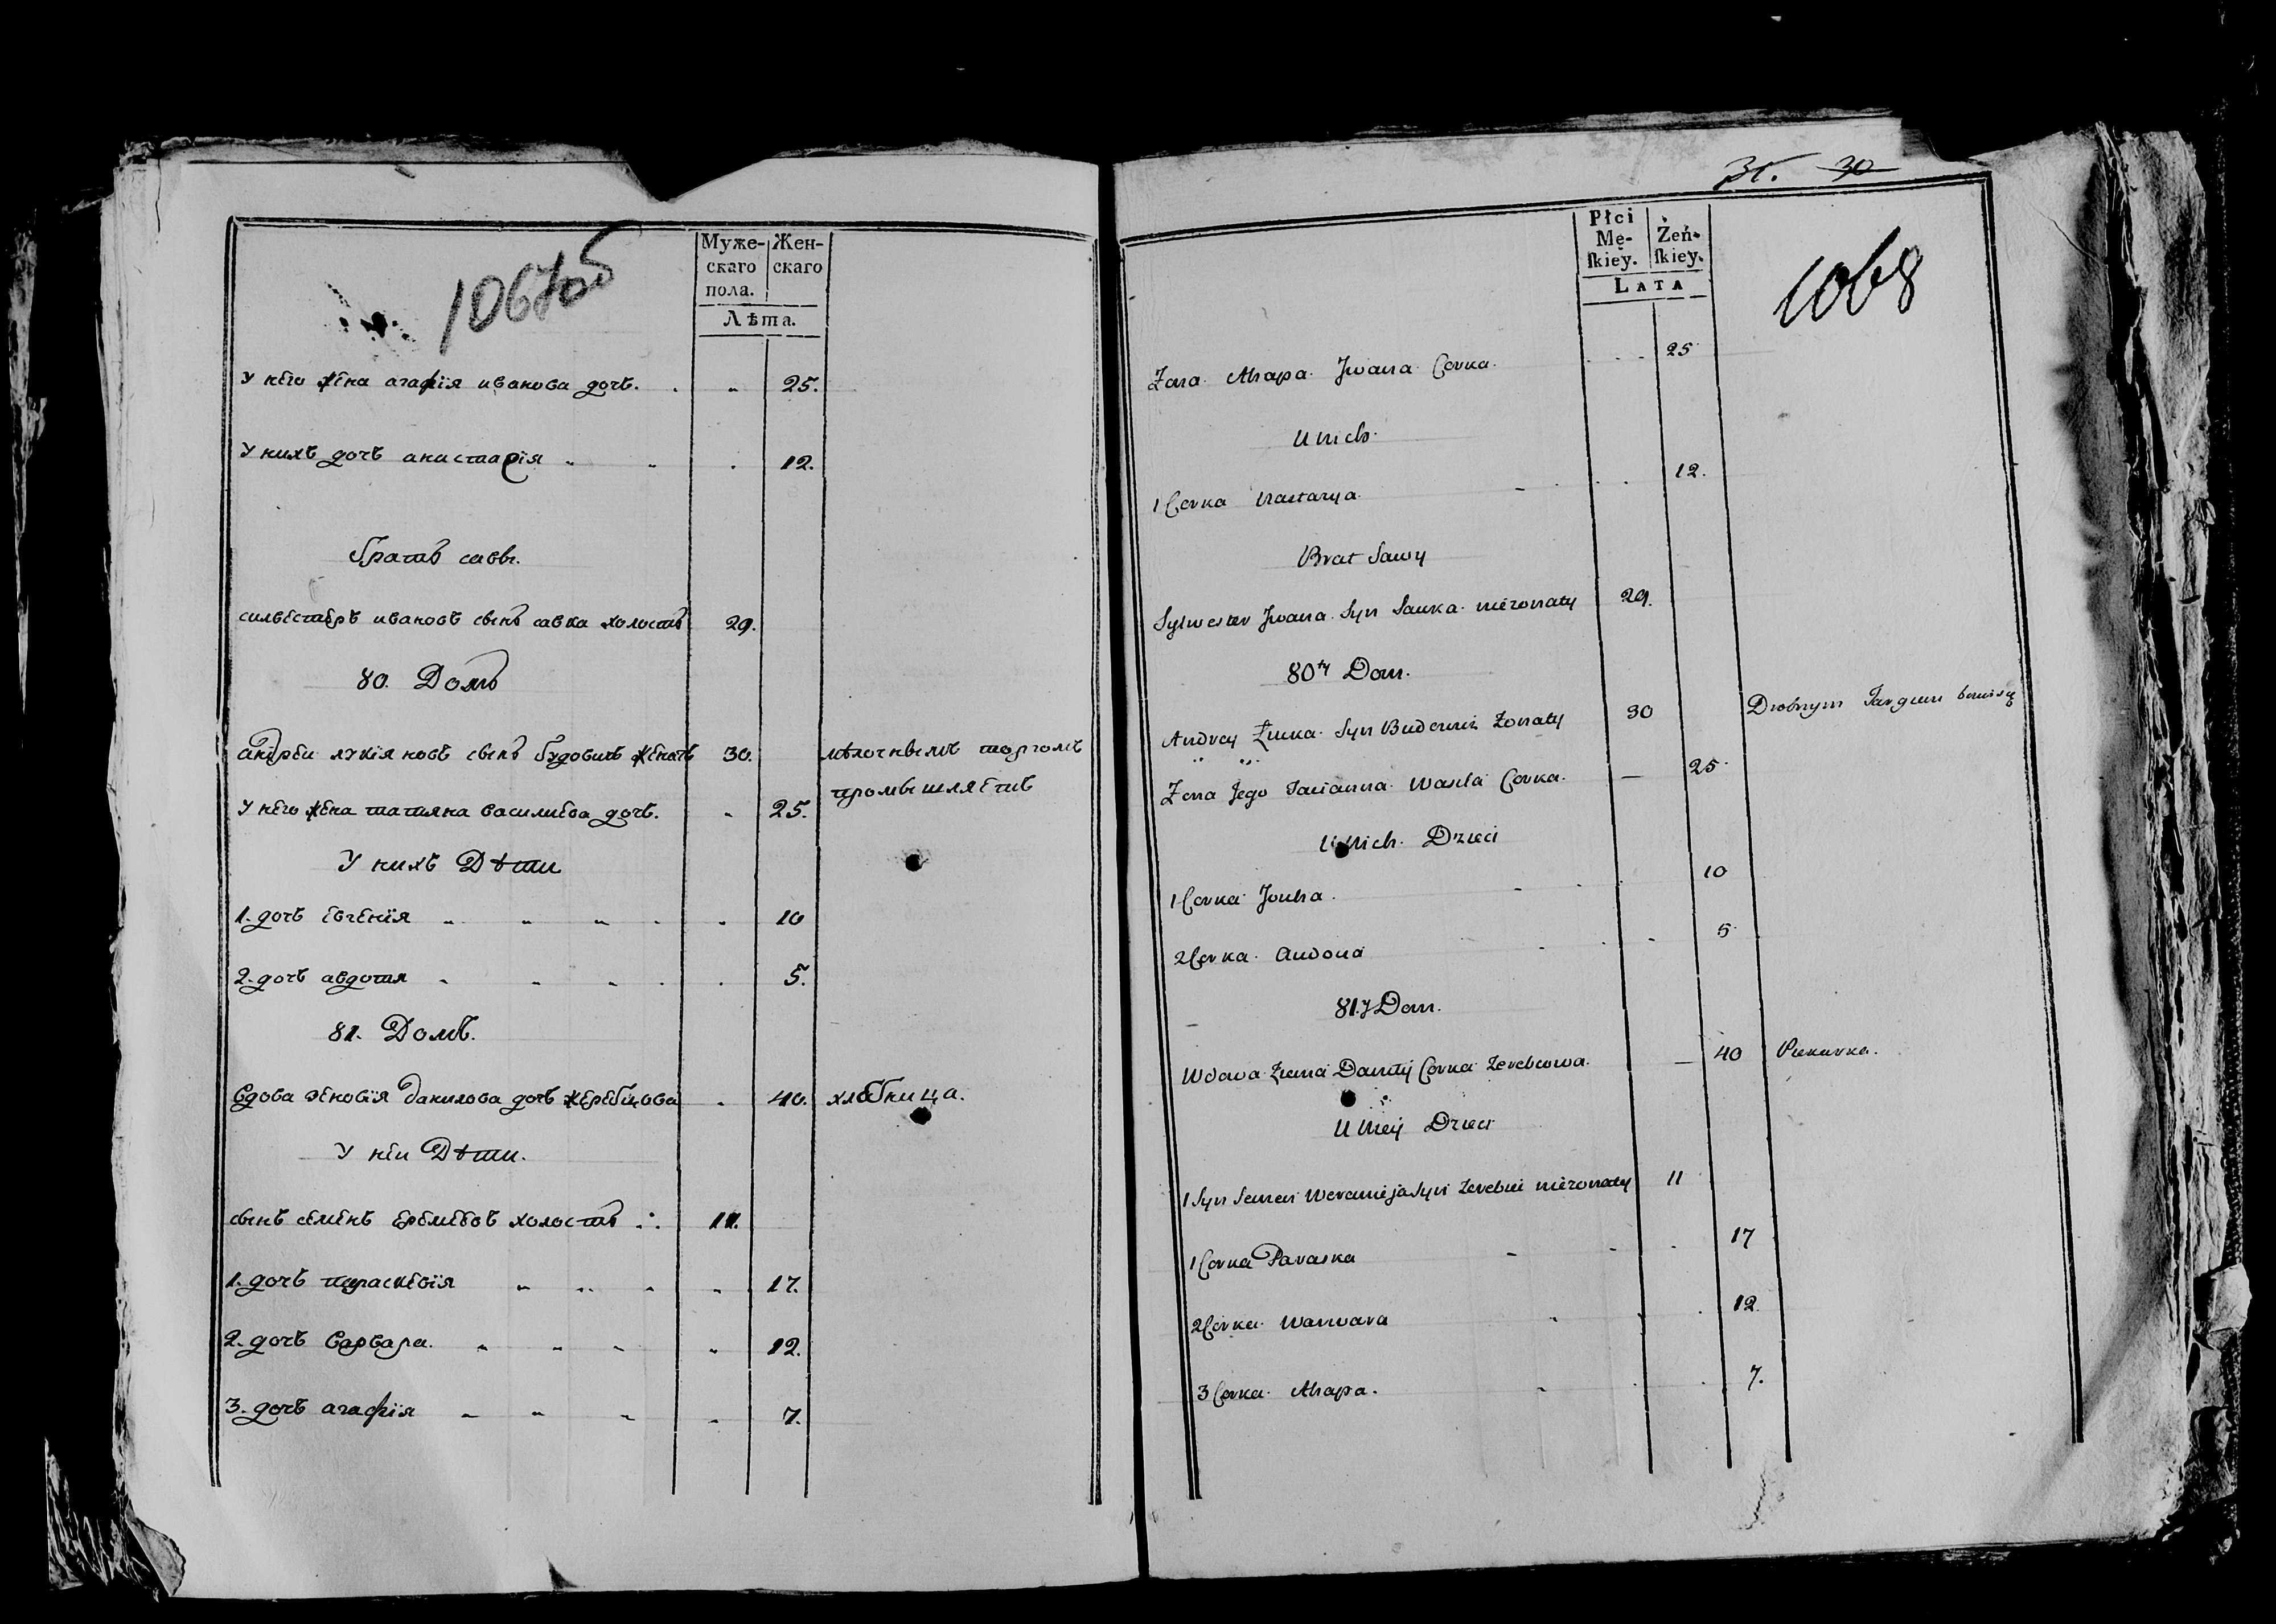 1067об
Муже-
скаго
пола.
Жен-
скаго
Лѣта.
У него жена агафїя иванова дочь. 25.
У нихъ дочь анастасїя 12.
братъ саввы.
сильвестеръ ивановъ сынъ савка холостъ 29.
80. Домъ
андреи лукїяновъ сынъ будовичъ женатъ 30. мѣлочнымъ торгомъ
промышляетъ
У него жена татяна василиева дочь. 25.
У нихъ Дѣти
1. дочь евгенїя 10
2. дочь авдотия 5.
81. Домъ.
вдова зеновїя данилова дочь жеребцова 40. хлѣбница.
У неи Дѣти.
сынъ семенъ еремеевъ холостъ 11.
1. дочь параскевїя 17.
2. дочь варвара. 12.
3. дочь агафїя 7.
31. 30
1068
Płci
Mę-
ſkiey.
Żeń-
ſkiey.
LATA
Zona Ahapa Jwana Corka. 25
U nich.
1 Corka Nastazya. 12.
Brat Sawy
Sylwester Jwana Syn Sauka niezonaty 29.
80ty Dom.
Andrey Łuka Syn Zonaty 30 Drobnym Targiem
Zona Jego Tacianna Wasila Corka. 25
U Nich Dzieci
1 Corka 10
2 Corka 5
81.y Dom.
Wdowa Corka 40 Piekarka.
U Niey Dzieci
1 Syn Semen Syn niezonaty 11
1 Corka Paraska 17
2 Corka Warwara 12
3 Corka Ahapa. 7.